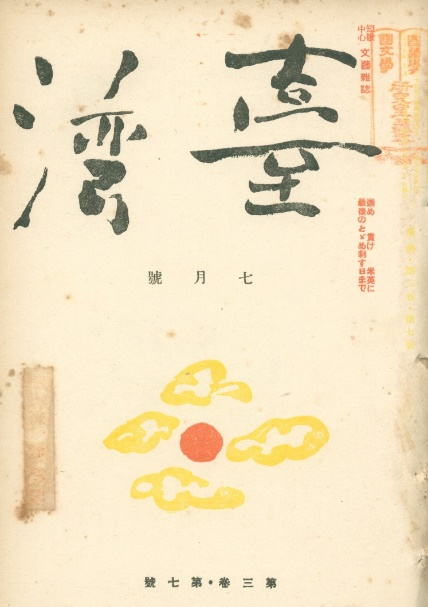 短歌中心 文藝雜誌
臺灣
進め 貫け 米英に
最後のとゞめ刺す日まで
七月號
第三卷・第七號